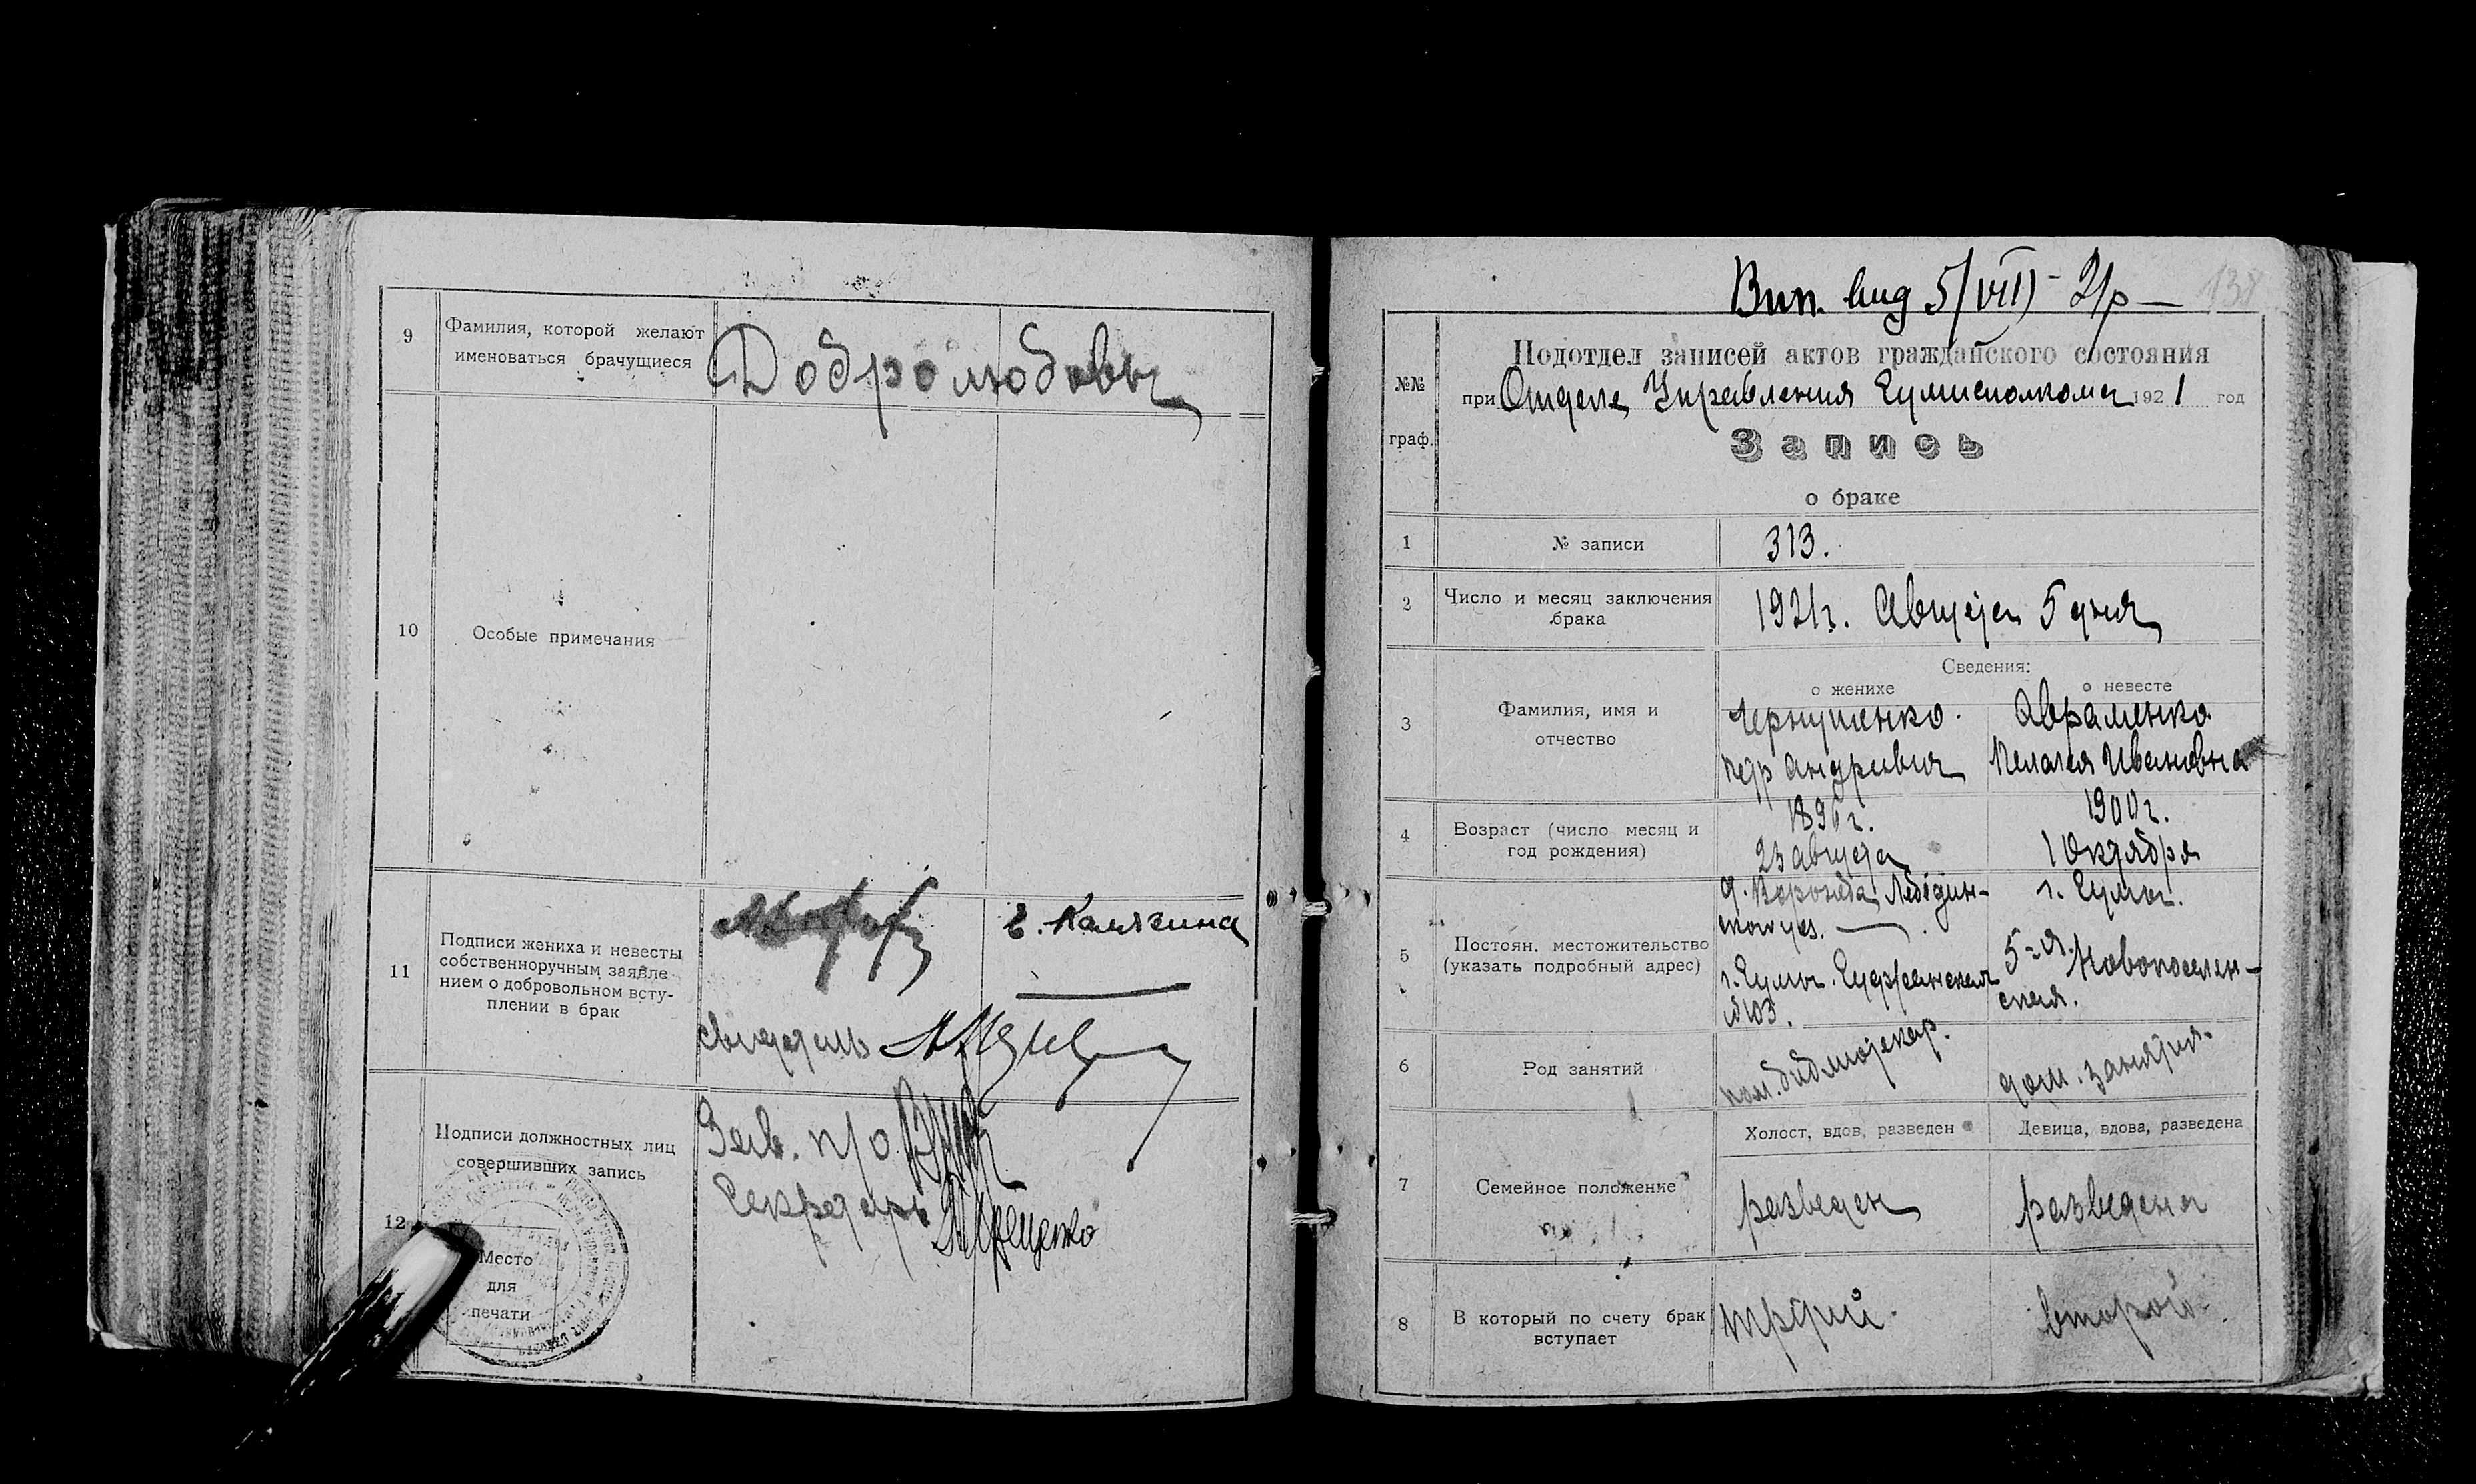 9
Фамилия, которой желают
именоваться брачущиеся
Добролюбовы
10
Особые примечания
11
Подписи жениха и невесты
собственноручным заявле-
нием о добровольном всту-
плении в брак
Е. Калягина
свидетель
12
Подписи должностных лиц
совершивших запись
Зав. п/о
Секретарь
Место
для
печати
Вип. вид 5/VIII - 21р —
138
№№
граф.
Подотдел записей актов гражданского состояния
при Отделе Управления Сумисполкома 1921 год
Запись
о браке
1
№ записи
313.
2
Число и месяц заключения
брака
1921г. Августа 5 дня
Сведения:
о женихе
о невесте
3
Фамилия, имя и
отчество
Чернушенко
Петр Андреевич
Авраменко
Пелагея Ивановна
4
Возраст (число месяц и
год рождения)
1896г.
23 августа
1900г.
1 Октября
5
Постоян. местожительство
(указать подробный адрес)
Лебедин-
ского уез.
г. Сумы. Суджанская
№103.
г. Сумы.
5-я Новопоселен-
ская.
6
Род занятий
пом. библиотекар.
дом. занятия.
7
Семейное положение
Холост, вдов, разведен
Девица, вдова, разведена
разведен
разведена
8
В который по счету брак
вступает
третий.
второй.